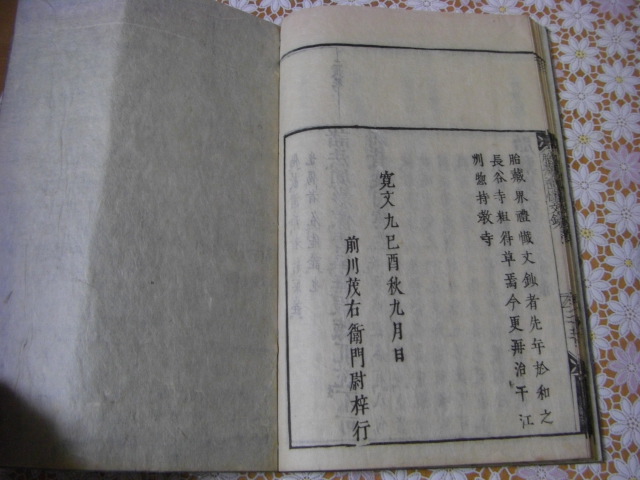 胎藏界禮懺文鈔者先年於和之
長谷寺粗得草焉今更再治于江
州惣持教寺
寛文九己酉秋九月日
前川茂右衛門尉梓行